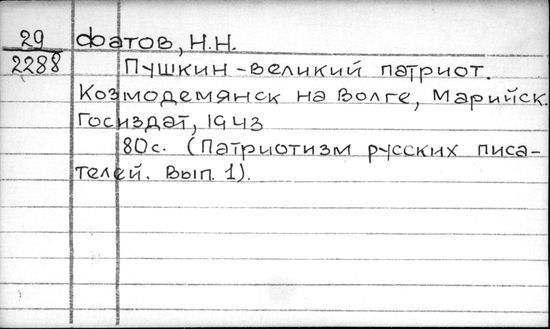 29 Фатов, Н.Н.
2288 Пушкин - великий патриот.
Козмодемянск на Волге, Марийск.
Госиздат, 1943
80с. (Патриотизм русских писа-
телей. Вып. 1).